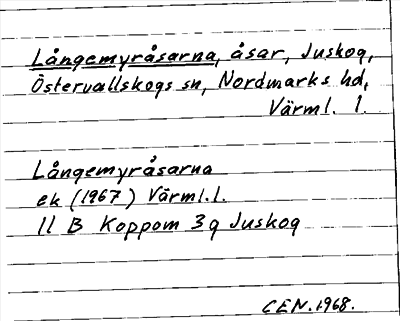 Långemyråsarna, åsar, Juskog,
Östervallskogs sn, Nordmarks hd,
Värml. l.
Långemyråsarna
ek (1967) Värml.l.
11 B Koppom 3g Juskog
CEN. 1968.